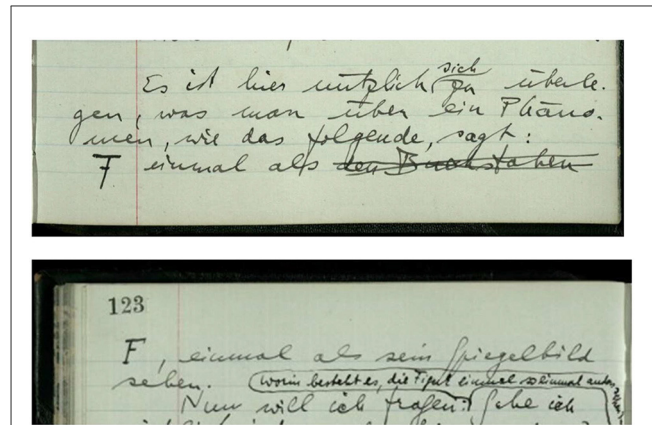 Es ist hier nützlich sich zu überle-
gen, was man über ein Phäno-
men, wie das folgende, sagt:
F einmal als den Buchstaben
123
F, einmal als sein Spiegelbild
sehen. (worin besteht es, die Figur einmal so einmal anders
Nun will ich fragen: Sehe ich